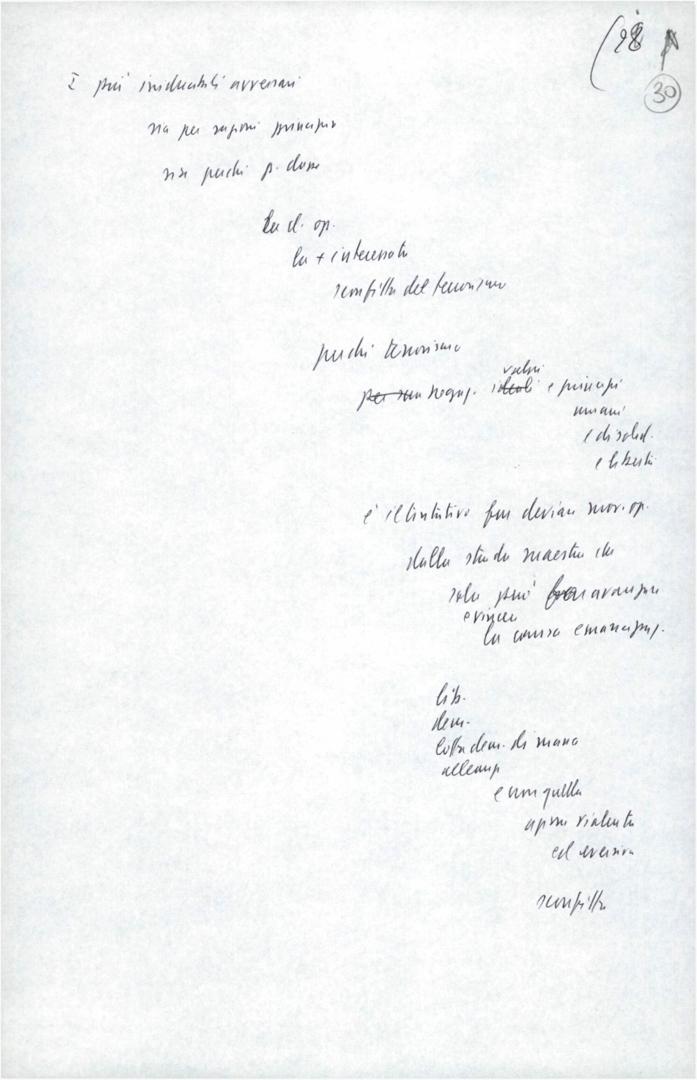 (28
30
I più irriducibili avversari
sia per ragioni principio
sia perché p. classe
La cl. op.
la + interessata
sconfitta del terrorismo
perché terrorismo
per sua negaz. ideali valori e principi
umani
e di solid.
e libertà
è il tentativo far deviare mov. op.
dalla strada maestra che
sola può far avanzare
e vincere
la causa emancipaz.
lib.
dem.
lotta dem. di massa
alleanz
e non quella
azione violenta
ed eversiva
sconfitta